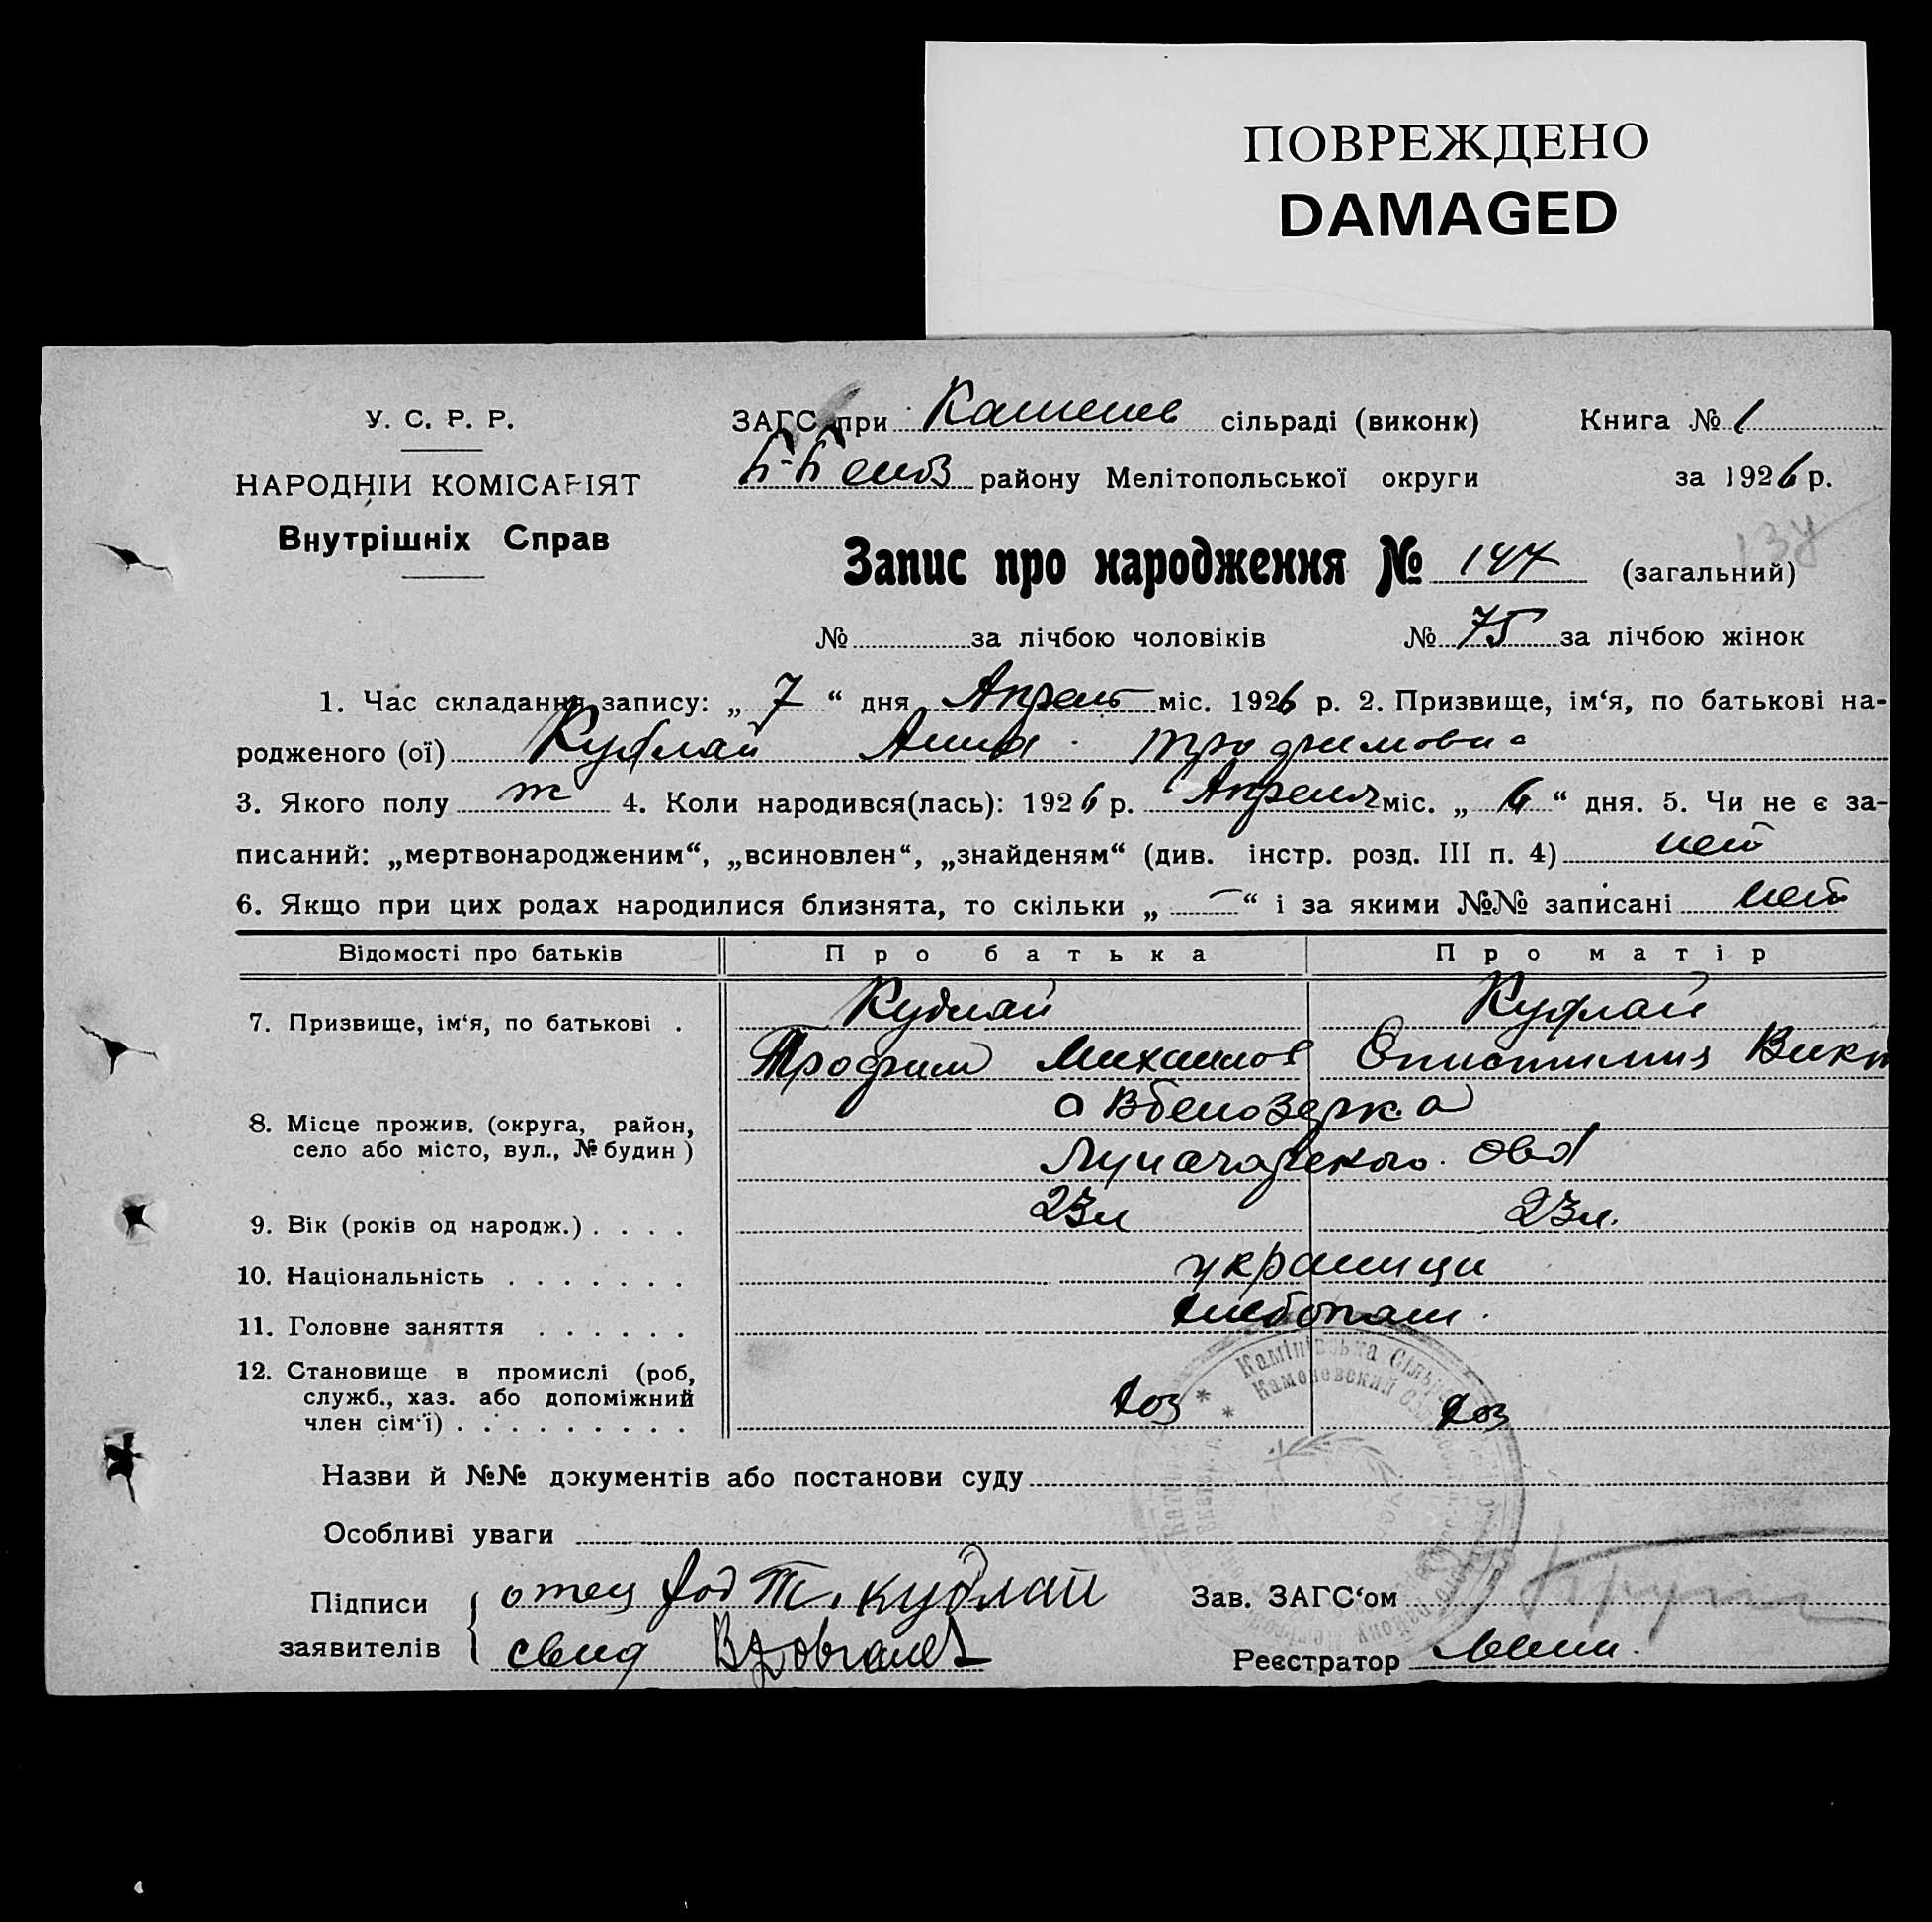 ПОВРЕЖДЕНО
DAMAGED
У. С. Р. Р.
НАРОДНІЙ КОМІСАРІЯТ
Внутрішніх Справ
ЗАГС при Каменев сільраді (виконк)
району Мелітопольської округи
Книга № 1
за 1926 р.
Запис про народження № 147 (загальний)
№ за лічбою чоловіків № 75 за лічбою жінок
1. Час складання запису: „ 7 “ дня Апрель міс. 1926 р. 2. Призвище, ім‘я, по батькові на-
родженого (ої) Кудлай Анна Трофимовна
3. Якого полу ж 4. Коли народився(лась): 1926 р. Апреля міс. „ 6 “ дня. 5. Чи не є за-
писаний: „мертвонародженим“, „всиновлен“, „знайденям“ (див. інстр. розд. III п. 4) нет
6. Якщо при цих родах народилися близнята, то скільки „ — “ і за якими №№ записані нет
Відомості про батьків Про батька Про матір
7. Призвище, ім‘я, по батькові . Кудлай Кудлай
Трофим Михаилов Викт
8. Місце прожив. (округа, район,
село або місто, вул., № будин )
Вбелозерка
9. Вік (років од народж.) . . . . 23 л 23 л.
10. Національність . . . . . . . украинци
11. Головне заняття . . . . . . хлебопаш.
12. Становище в промислі (роб,
служб., хаз. або допоміжний
член сім‘ї) . . . . . . . . . хоз хоз
Назви й №№ документів або постанови суду
Особливі уваги
Підписи
заявителів
отец Т. Кудлай
свид
Зав. ЗАГС‘ом
Реєстратор